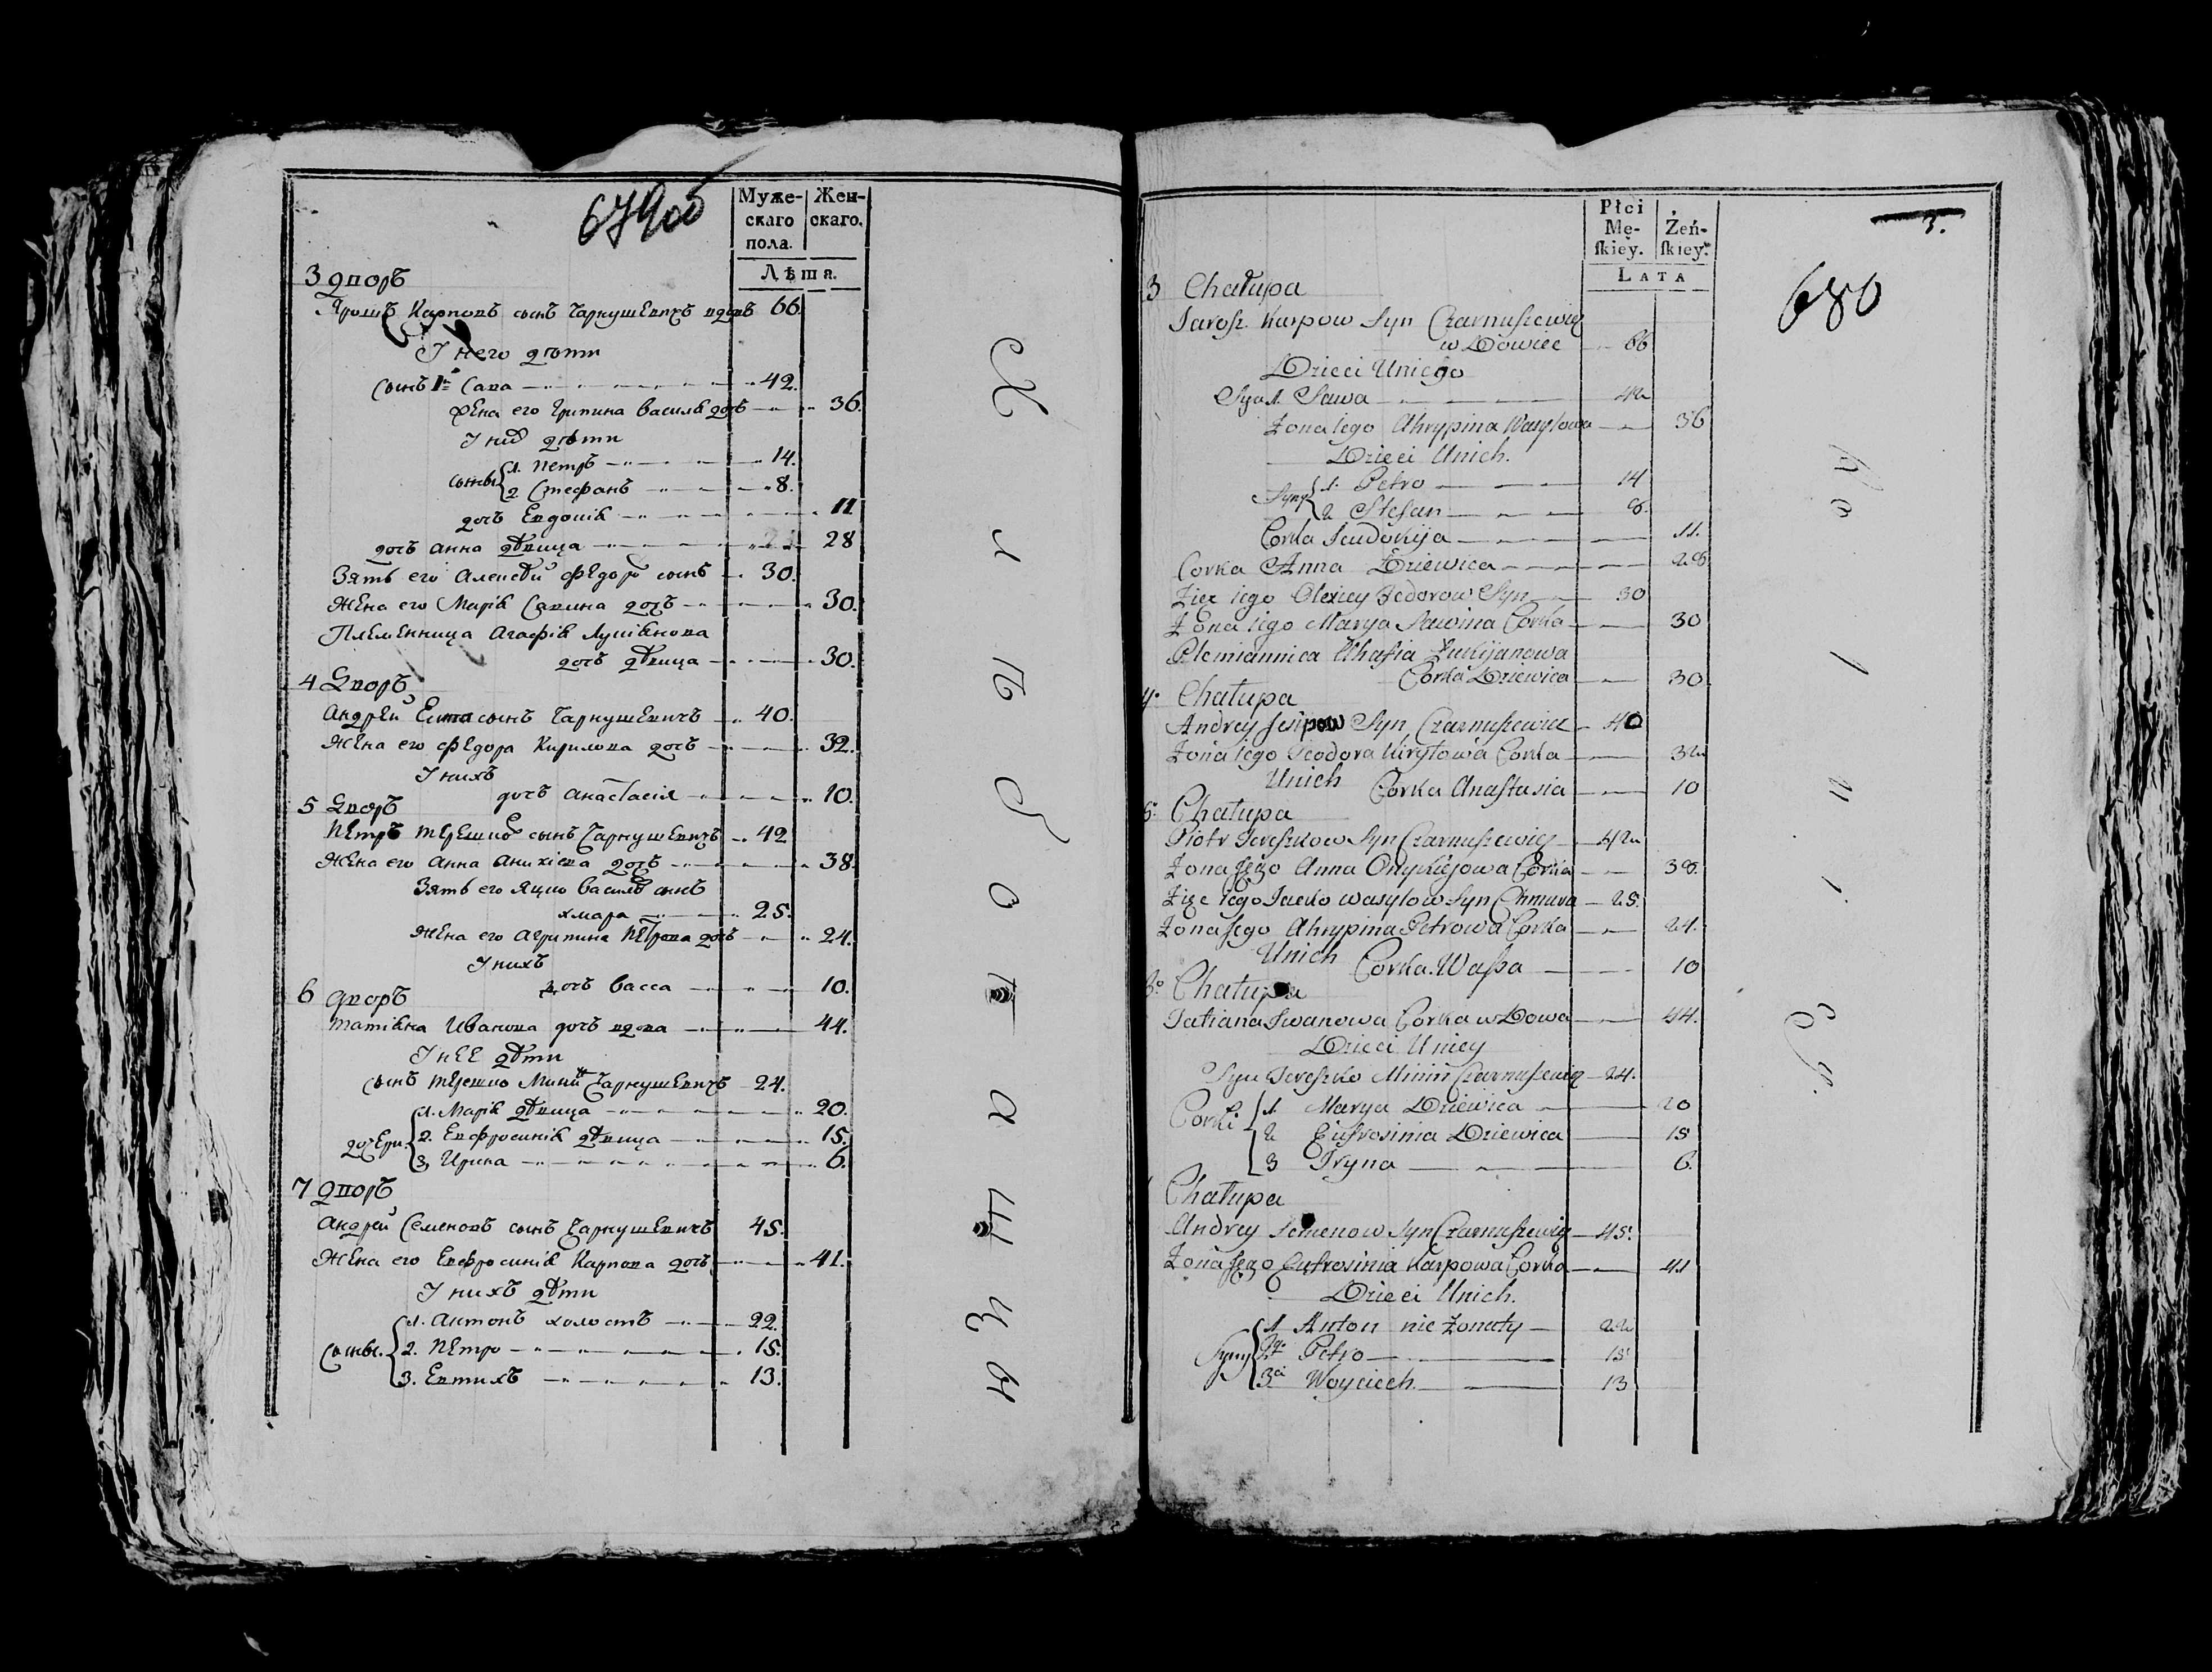 679об
Муже-
скаго
пола.
Жен-
скаго.
Лѣта.
3 дворъ
Ярошъ Карповъ сынъ Чарнушевичъ вдовъ 66.
У него дѣти
сынъ 1й Сава 42.
Жена его Грипина Василя дочь 36.
У них дѣти
сыны
1. Петръ 14.
2 Стефанъ 8.
дочь Евдокія 11
дочь Анна дѣвица 28
Зять его Алексѣй Федоровъ сынъ 30.
Жена его Марія Савина дочь 30.
Племенница Агафія Лукіянова
дочь дѣвица 30.
4 Дворъ
Андрей сынъ Чарнушевичъ 40.
Жена его Федора Кирилова дочь 32.
У нихъ
дочь Анастасія 10.
5 Дворъ
Петръ Терешков сынъ Чарнушевичъ 42
Жена его Анна Аникіева дочь 38.
Зять его Яцко Василев сынъ
Хмара 25.
Жена его Агрипина Петрова дочь 24.
У нихъ
дочь Васса 10.
6 дворъ
Татіяна Иванова дочь вдова 44.
У нее дѣти
сынъ Терешко Минин Чарнушевичъ 24.
дочери
1. Марія дѣвица 20.
2. Евфросинія дѣвица 15.
3, Ирина 6.
7 дворъ
Андрей Семеновъ сынъ Чарнушевичъ 45.
Жена его Евфросинія Карпова дочь 41.
У нихъ дѣти
сыны.
1. Антонъ холостъ 22.
2. Петро 15.
3. Евтихъ 13.
Płci
Mę-
ſkiey.
Żeń-
ſkiey.
LATA
3.
680
3 Chałupa
Jarosz Karpow Syn Czarnuszewicz
wDowiec 66
Dzieci Uniego
Syn 1. Sawa 42
Żona Jego Ahrypina Wasylowa 36
Dzieci Unich.
Syny
1. Petro 14
2 Stefan 8.
Corka Jeudokija 11.
Corka Anna Dziewica 28
Zięc Jego Olexiey Fedorow Syn 30
Żona Jego Marya Sawina Corka 30
Plemiannica Uhafia Łukijanowa
Corka Dziewica 30.
4. Chałupa
Andrey Jesipow Syn Czarnuszewicz 40
Żona Jego Teodora Kiryłowa Corka 32
Unich Corka Anastasia 10
5. Chałupa
Piotr Tereszkow Syn Czarnuszewicz 42
Żona Jego Anna Onykiejowa Corka 38.
Zięc Jego Jacko Wasylow Syn Chmara 25.
Żona Jego Ahrypina Petrowa Corka 24.
Unich Corka Wassa 10
Chałupa
Tatiana Jwanowa Corka wDowa 44.
Dzieci Uniey
Syn Tereszko Minin Czarnuszewicz 24.
Corki
1. Marya Dziewica 20
2 Eufrosinia Dziewica 15
3 Iryna 6.
Chałupa
Andrey Semenow Syn Czarnuszewicz 45.
Żona Jego Eufrosinia Karpowa Corka 41
Dzieci Unich.
Syny
1 Anton nie Żonaty 22
2gi Petro 15
3ci Woyciech 13